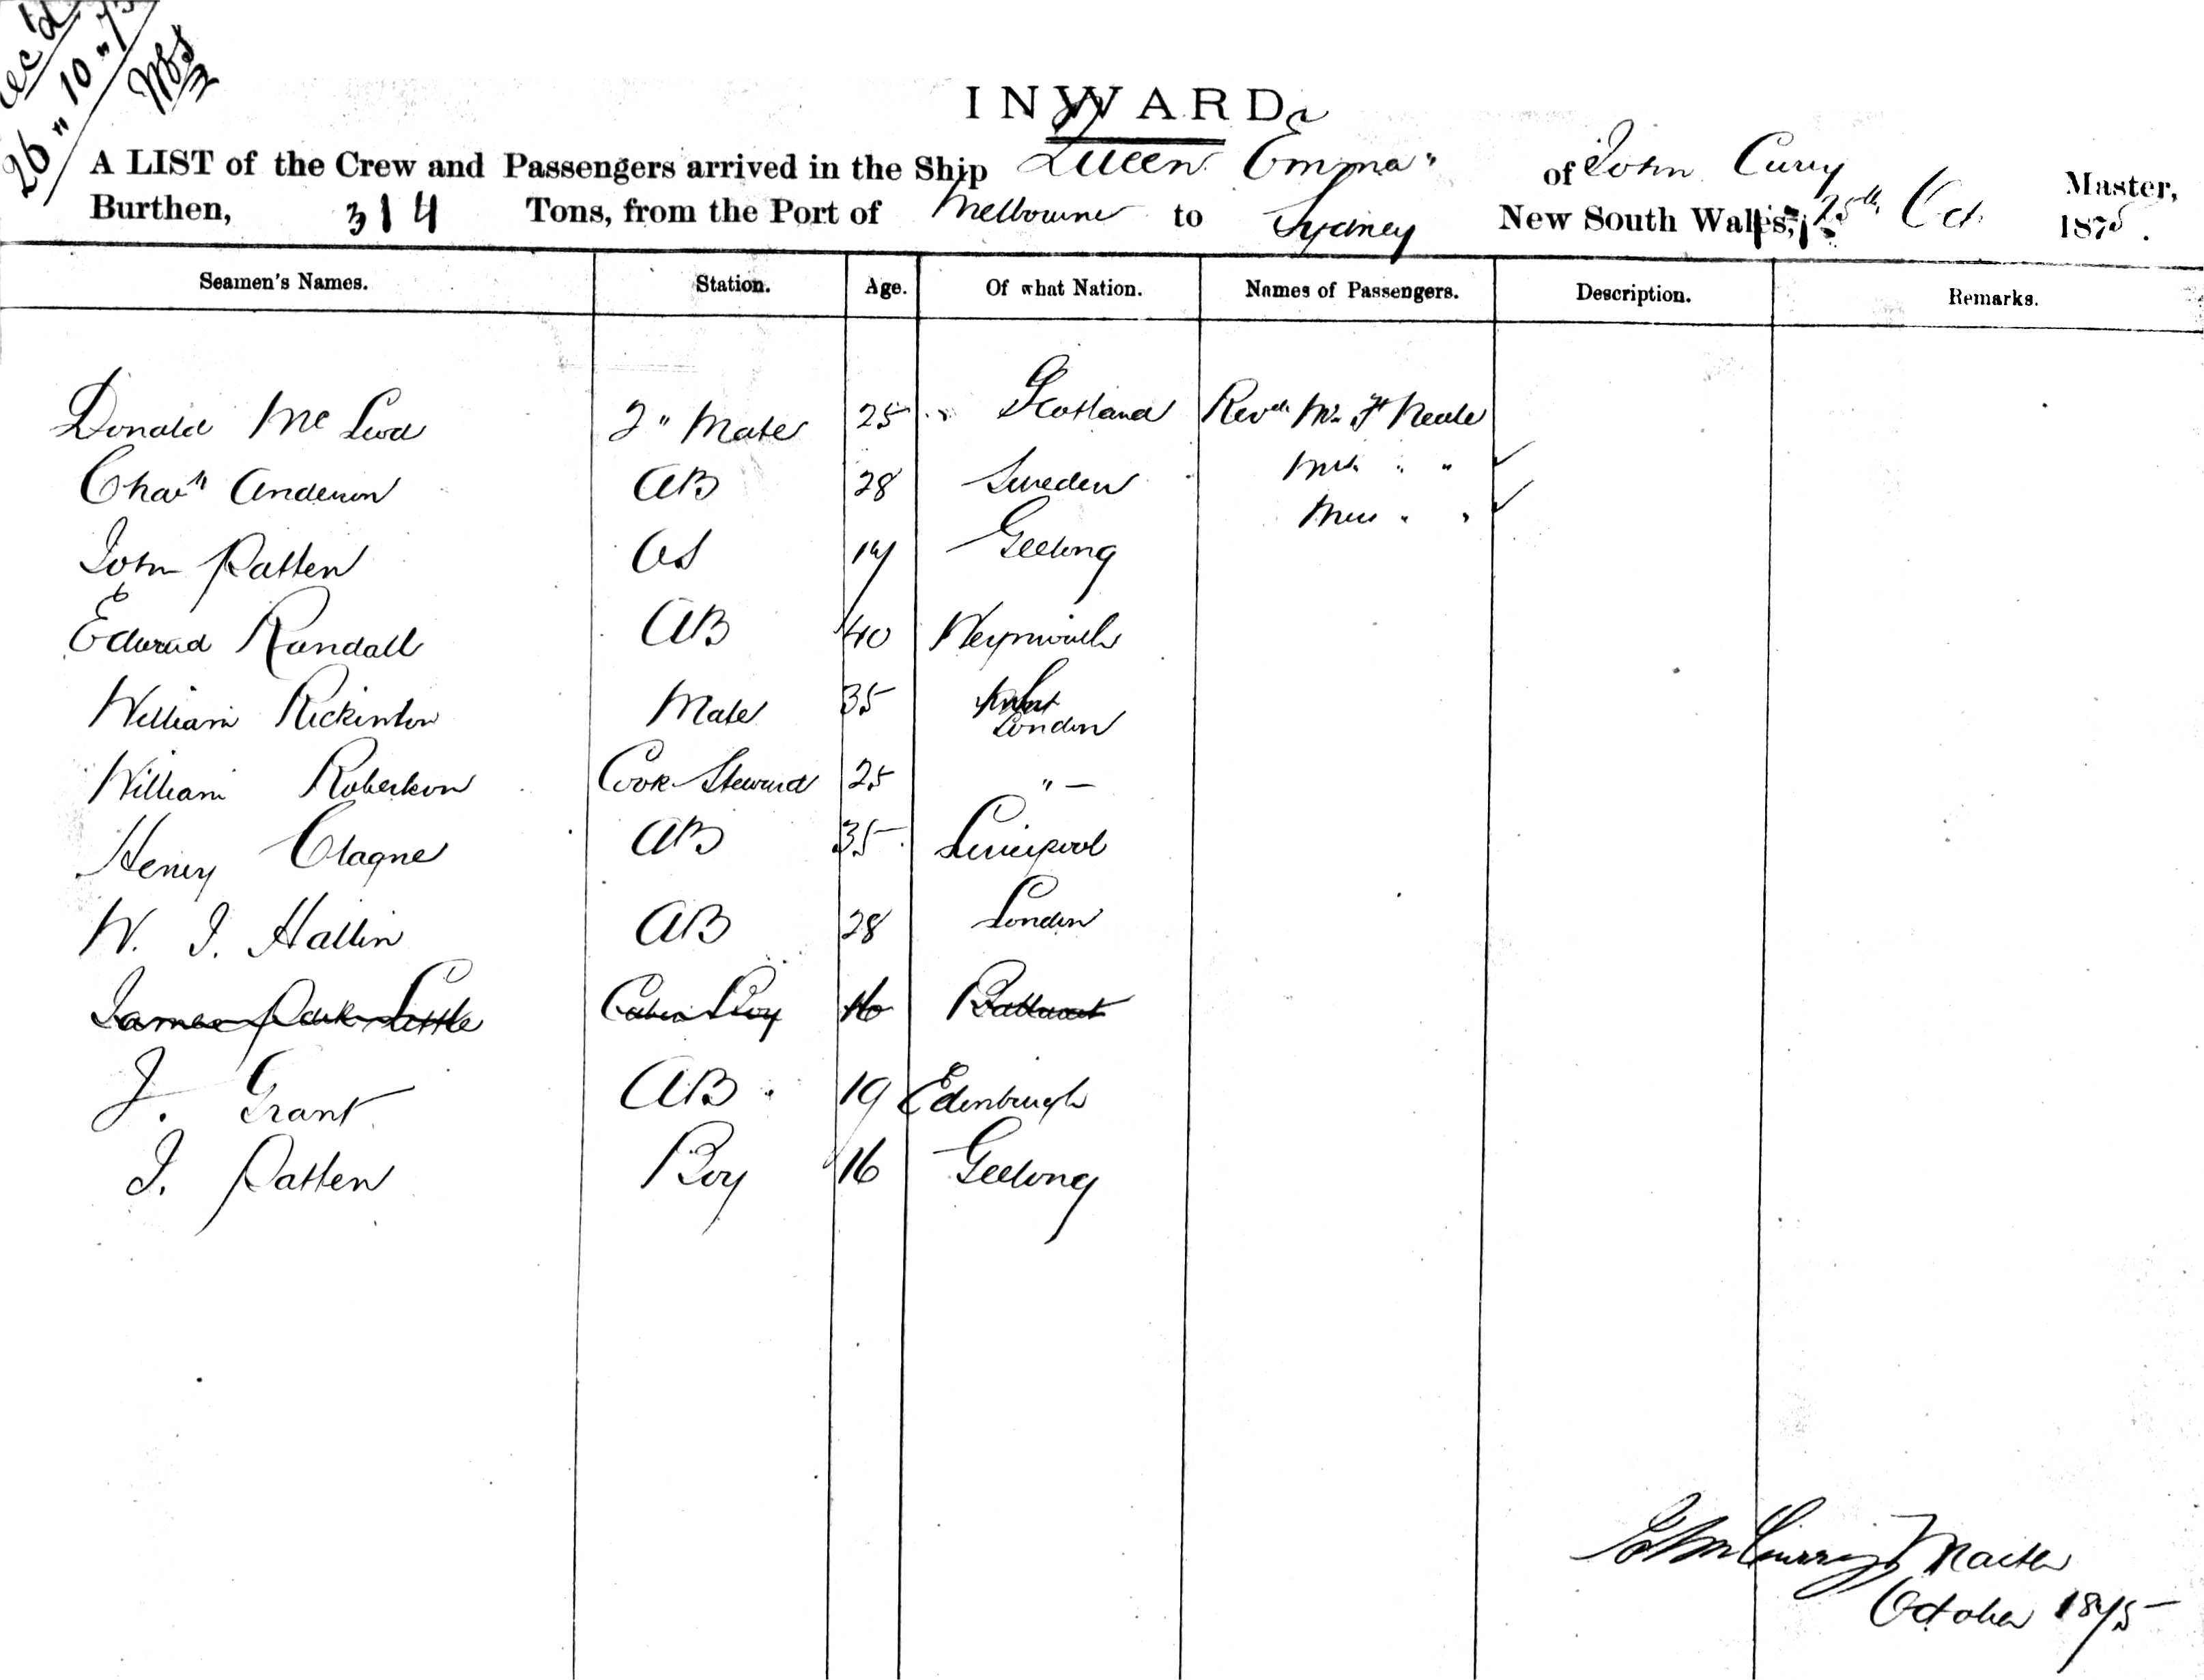 26 " 10 "
INWARD
A LIST of the Crew and Passengers arrived in the Ship Queen Emma" of John Curry Master,
Burthen, 314 Tons, from the Port of Melbourne to Sydney New South Wales, 25th Oct 1875.
Seamen's Names. Station. Age. Of what Nation. Names of Passengers. Description. Remarks.
Donald Mc Leod 2" Mate 25 Scotland Revd Mr Neale
Chas Anderson AB 28 Sweden Mrs " "
Miss " "
John Patten OS 17 Geelong
Edward Randall AB 40 Weymouth
William Rickinton Mate 35 London
William Robertson Cook Steward 25 " —
Henry Clague AB 35 Liverpool
W. J. Hallin AB 28 London
James Park Little Cabin Boy 16 Ballarat
J. Grant AB 19 Edenburgh
J. Patten Boy 16 Geelong
John Currey Master
October 1875